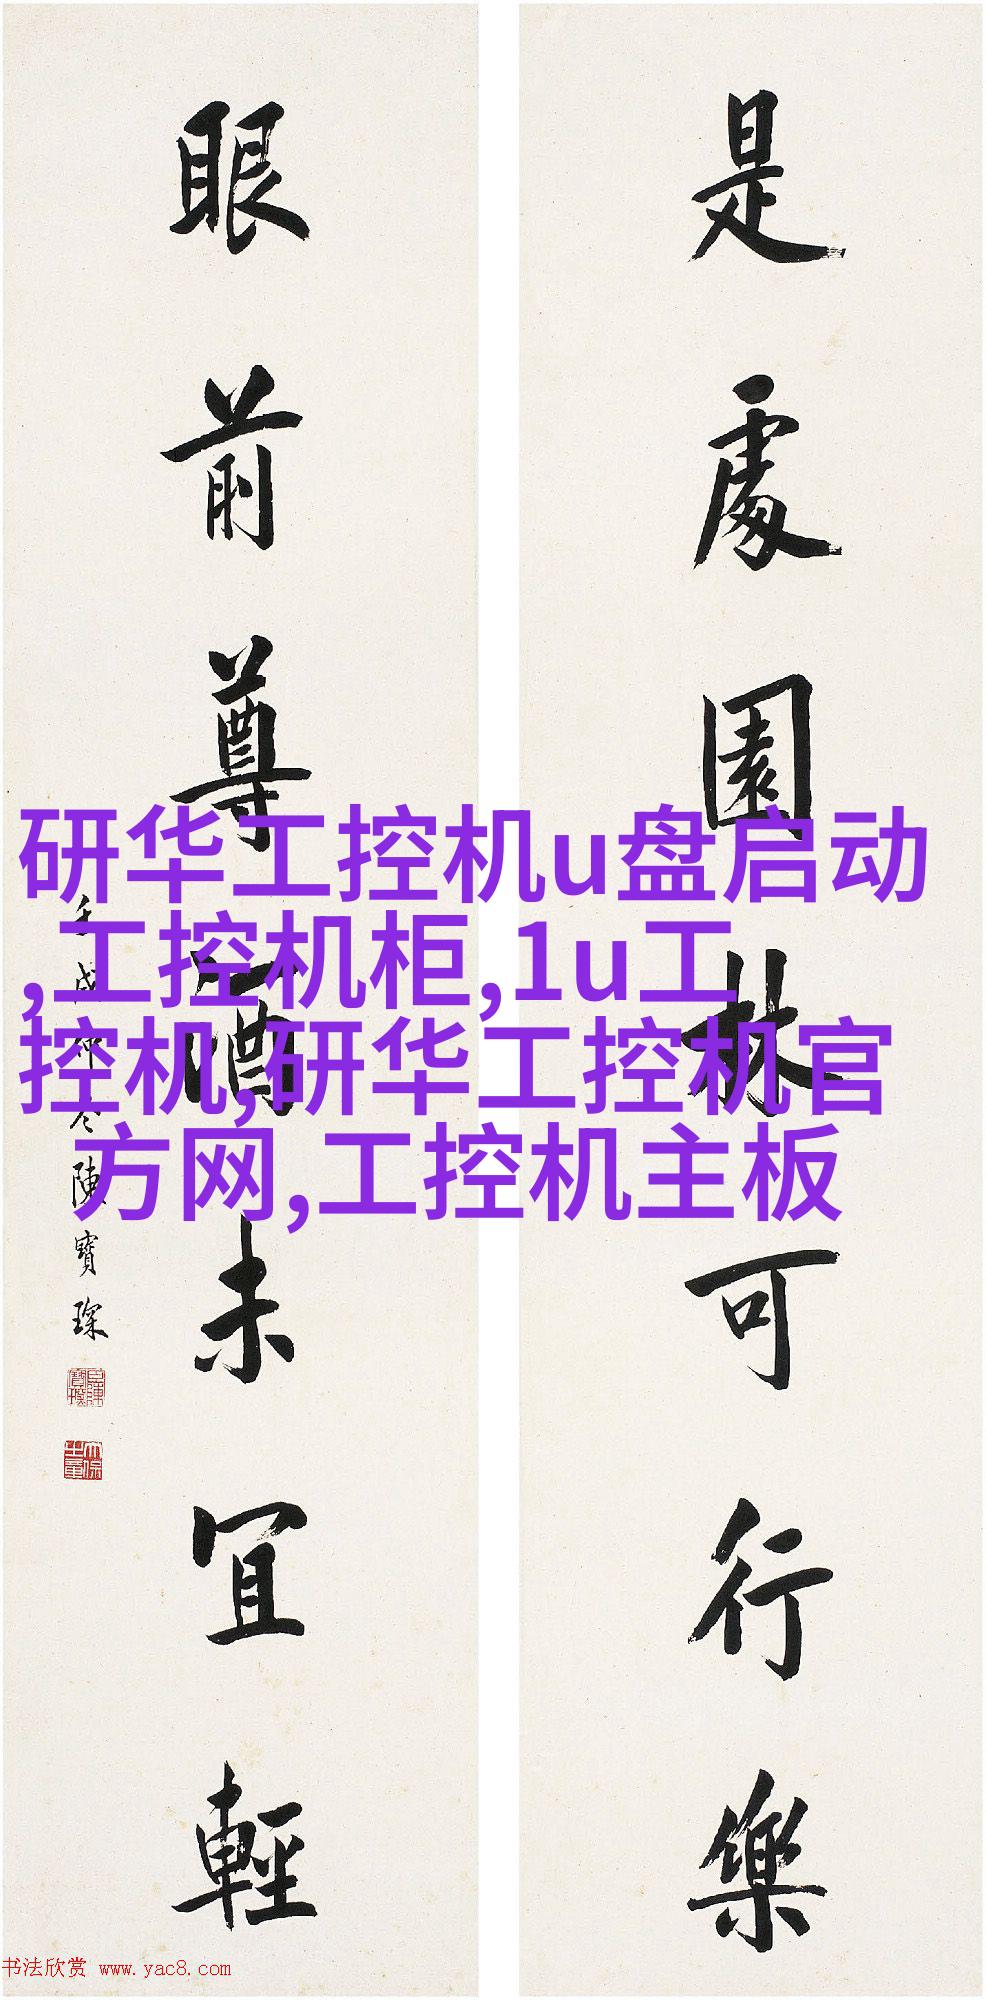 是處園林可行樂
眼前尊酒未宜輕
壬戌仲冬陳寶琛
研华工控机u盘启动
,工控机柜,1u工
控机,研华工控机官
方网,工控机主板
书法欣赏 www.yac8.com